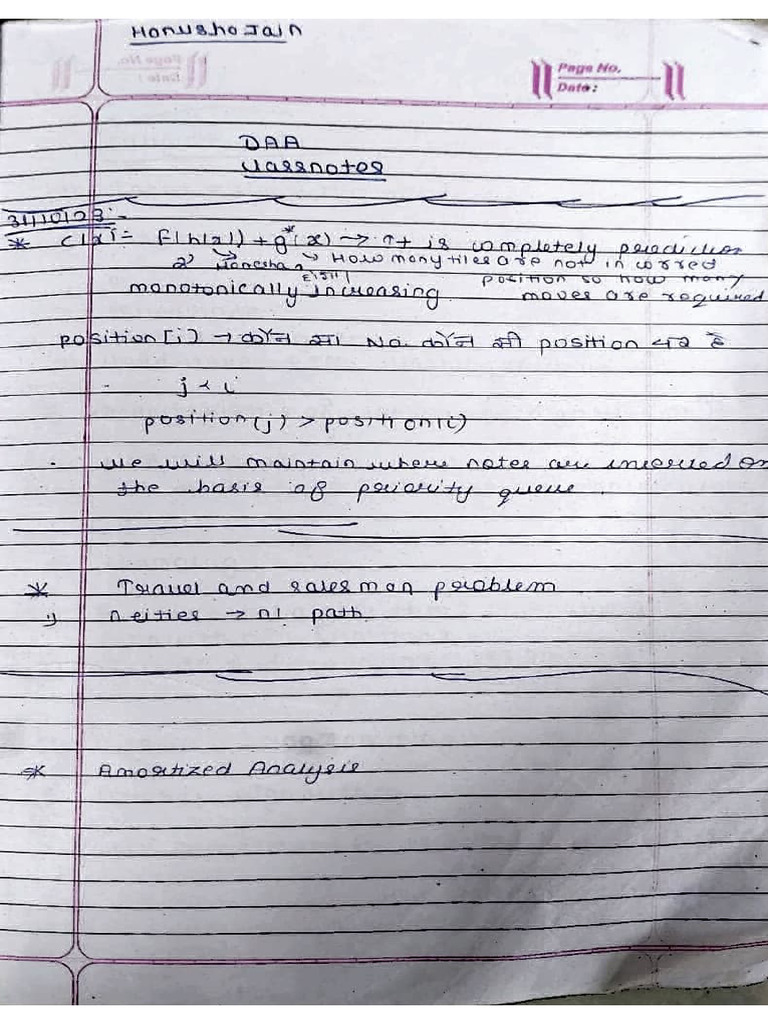 Honusha Jain
Page No.
Date:
DAA
classnotes
31/10/23:-
* c(x) = f(h(x)) + g*(x) → It is completely prediction
How many tiles are not in correct
position so how many
monotonically increasing moves are required
position[i] → कौन सा No. कौन सी position पर है
j < i
position(j) > position(i)
. we will maintain where notes are inserted on
the basis of priority queue.
* Travel and salesman problem
1) n cities → n! path
* Amortized Analysis